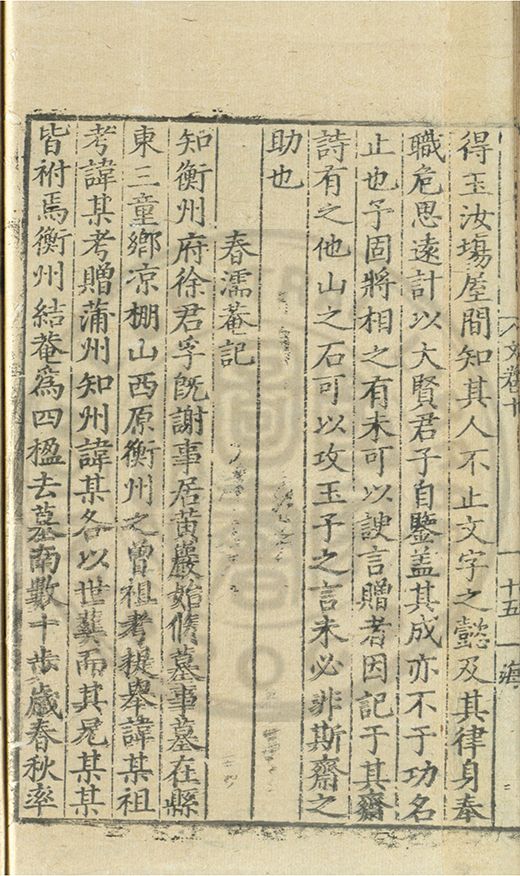 得玉汝塲屋間知其人不止文字之懿及其律身奉
職危思遠計以大賢君子自鑒盖其成亦不于功名
止也予固將相之有未可以諛言贈者因記于其齋
詩有之他山之石可以攻玉子之言未必非斯齋之
助也
春濡菴記
知衡州府徐君孚旣謝事居黄巖始脩墓事墓在縣
東三童鄉凉棚山西原衡州之曾祖考提舉諱某祖
考諱某考贈蒲州知州諱某各以世葬而其昆某某
皆祔焉衡州結菴爲四楹去墓南數十步歲春秋率